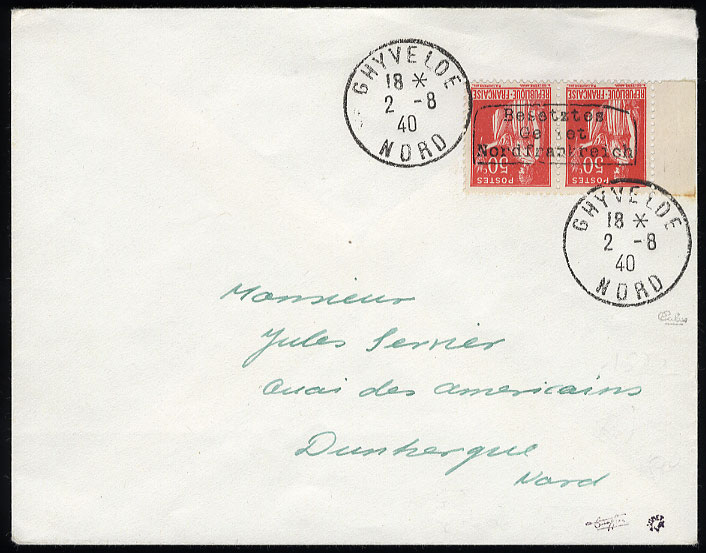 GHYVELDE
18 *
2 -8
40
NORD
REPUBLIQUE-FRANCAISE
REPUBLIQUE-FRANCAISE
Besetztes
Gebiet
Nordfrankreich
50c
POSTES
50c
POSTES
GHYVELDE
18 *
2 -8
40
NORD
Monsieur
Jules Serrier
Quai des Americains
Dunkerque
Nord